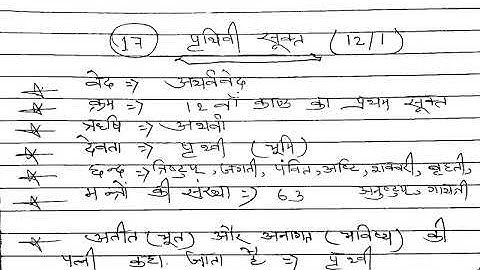 17 पृथिवी सूक्त (12/1)
वेद => अथर्ववेद
क्रम => 12 वाँ काण्ड का प्रथम सूक्त
ऋषि => अथर्वा
देवता => पृथ्वी (भूमि)
छन्द => त्रिष्टुप, जगती, पंक्ति, अष्टि, शक्वरी, बृहती,
मन्त्रों की संख्या => 63 अनुष्टुप, गायत्री
अतीत (भूत) और अनागत (भविष्य) की
पत्नी कहा जाता है => पृथ्वी